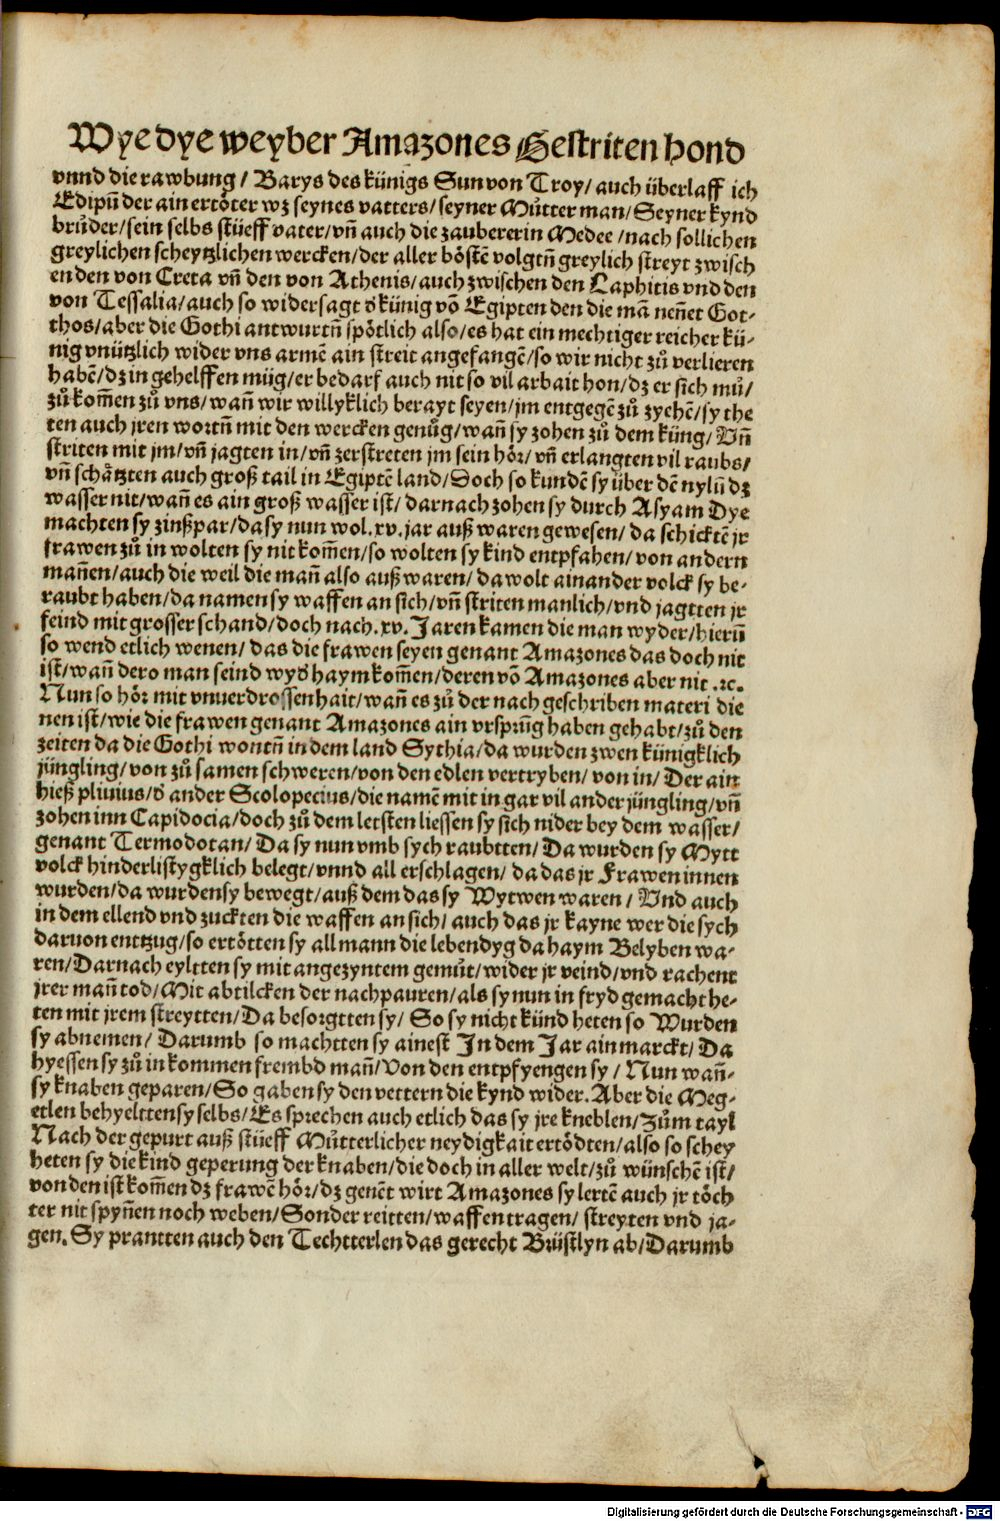 Wye dye weyber Amazones Gestriten hond
vnnd die rawbung / Barys des künigs Sun von Troy / auch überlaff ich
Edipū der ain ertöter wz seynes vatters / seyner Můtter man / Seyner kynd
brůder / sein selbs stüeff vater / vñ auch die zaubererin Medee / nach sollichen
greylichen scheytzlichen wercken / der aller böstē volgtñ greylich streyt zwisch
en den von Creta vñ den von Athenis / auch zwischen den Laphitis vnd den
von Tessalia / auch so widersagt d̾ künig võ Egipten den die mã nenet Got-
thos / aber die Gothi antwurtñ spötlich also / es hat ein mechtiger reicher kü-
nig vnützlich wider vns armē ain streit angefangē / so wir nicht zů verlieren
habē / dz in gehelffen müg / er bedarf auch nit so vil arbait hon / dz er sich mů /
zů kom̄en zů vns / wañ wir willyklich berayt seyen / jm entgegē zů zychē / sy the
ten auch jren wortñ mit den wercken genůg / wañ sy zohen zů dem küng / Vñ
striten mit jm / vñ jagten in / vñ zerstreten jm sein hör / vñ erlangten vil raubs /
vñ schåtzten auch groß tail in Egiptē land / Doch so kundē sy über dē nylū dz
wasser nit / wañ es ain groß wasser ist / darnach zohen sy durch Asyam Dye
machten sy zinßpar / da sy nun wol .xv. jar auß waren gewesen / da schicktē jr
frawen zů in wolten sy nit kom̄en / so wolten sy kind entpfahen / von andern
mañen / auch die weil die mañ also auß waren / da wolt ain ander volck sy be-
raubt haben / da namen sy waffen an sich / vñ striten manlich / vnd jagtten jr
feind mit grosser schand / doch nach .xv. Jaren kamen die man wyder / hierū
so wend etlich wenen / das die frawen seyen genant Amazones das doch nit
ist / wañ dero man seind wyd̾ haym kom̄en / deren võ Amazones aber nit .rc.
Nun so hör mit vnuerdrossenhait / wañ es zů der nach geschriben materi die
nen ist / wie die frawen genant Amazones ain vrsprūg haben gehabt / zů den
zeiten da die Gothi wontñ in dem land Sythia / da wurden zwen künigklich
jüngling / von zů samen schweren / von den edlen vertryben / von in / Der ain
hieß plinius / d̾ ander Scolopecius / die namē mit in gar vil ander jüngling / vñ
zohen inn Capidocia / doch zů dem letsten liessen sy sich nider bey dem wasser /
genant Termodotan / Da sy nun vmb sych raubtten / Da wurden sy Mytt
volck hinderlistygklich belegt / vnnd all erschlagen / da das jr Frawen innen
wurden / da wurden sy bewegt / auß dem das sy Wytwen waren / Vnd auch
in dem ellend vnd zuckten die waffen an sich / auch das jr kayne wer die sych
daruon entzug / so ertötten sy all mann die lebendyg da haym Belyben wa-
ren / Darnach eyltten sy mit angezyntem gemůt / wider jr veind / vnd rachent
jrer mañ tod / Mit abtilcken der nachpauren / als sy nun in fryd gemacht he-
ten mit jrem streytten / Da besorgtten sy / So sy nicht künd heten so Wurden
sy abnemen / Darumb so machtten sy ainest In dem Jar ain marckt / Da
hyessen sy zů in kommen frembd mañ / Von den entpfyengen sy / Nun wañ-
sy knaben geparen / So gaben sy den vettern die kynd wider. Aber die Meg-
etlen behyeltten sy selbs / Es sprechen auch etlich das sy jre kneblen / Zům tayl
Nach der gepurt auß stüeff Můtterlicher neydigkait ertödten / also so schey
heten sy die kind geperung der knaben / die doch in aller welt / zů wünschē ist /
von den ist kom̄en dz frawē hör / dz genēt wirt Amazones sy lertē auch jr töch
ter nit spyñen noch weben / Sonder reitten / waffen tragen / streyten vnd ja-
gen. Sy prantten auch den Techtterlen das gerecht Brüstlyn ab / Darumb
Digitalisierung gefördert durch die Deutsche Forschungsgemeinschaft - DFG